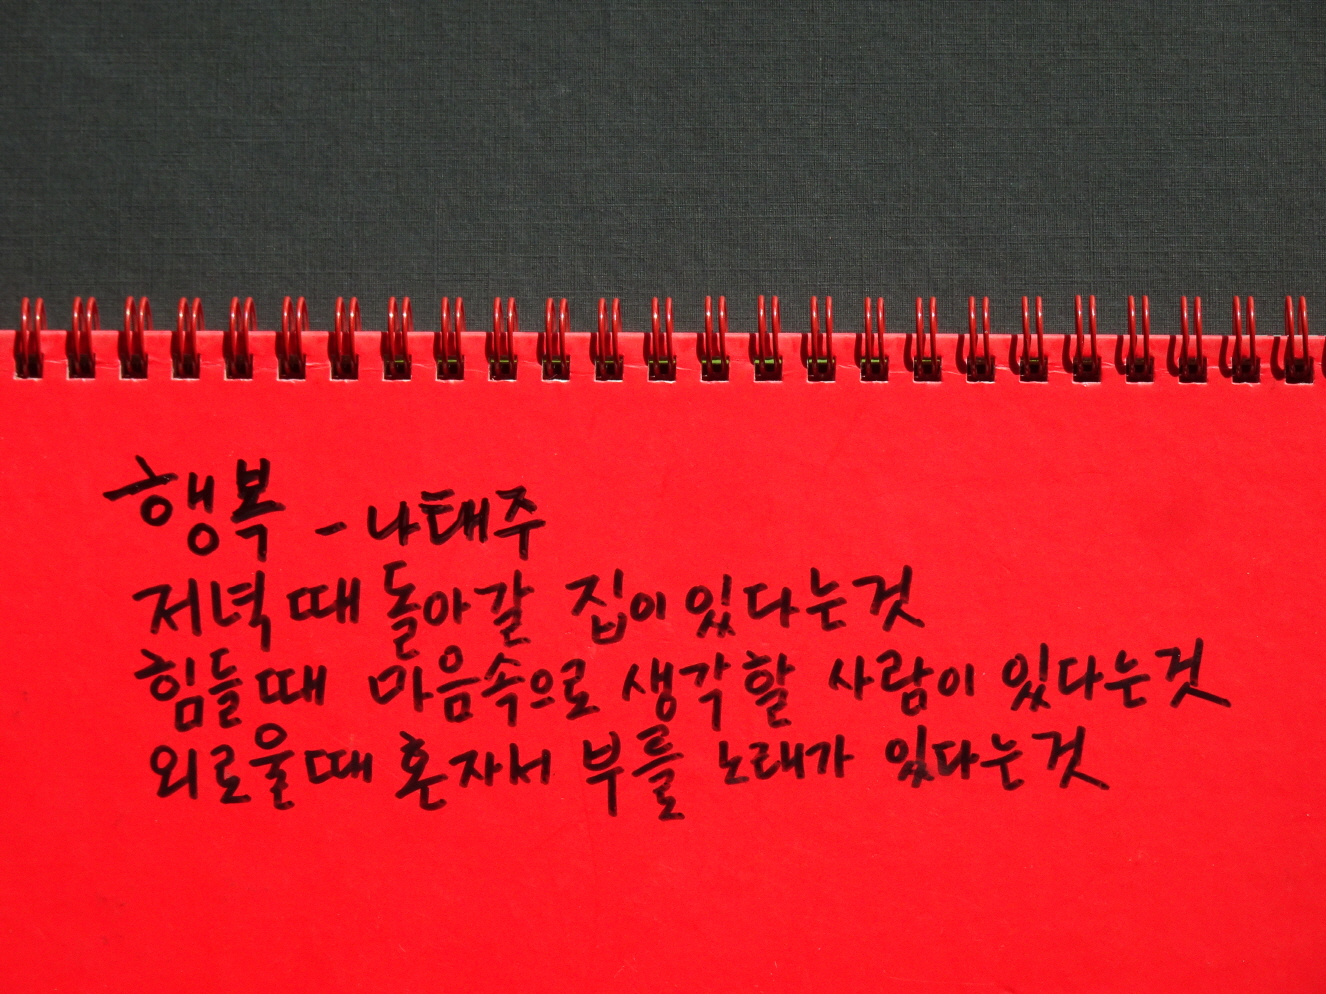 행복 - 나태주
저녁때 돌아갈 집이 있다는것
힘들때 마음속으로 생각할 사람이 있다는것
외로울때 혼자서 부를 노래가 있다는것